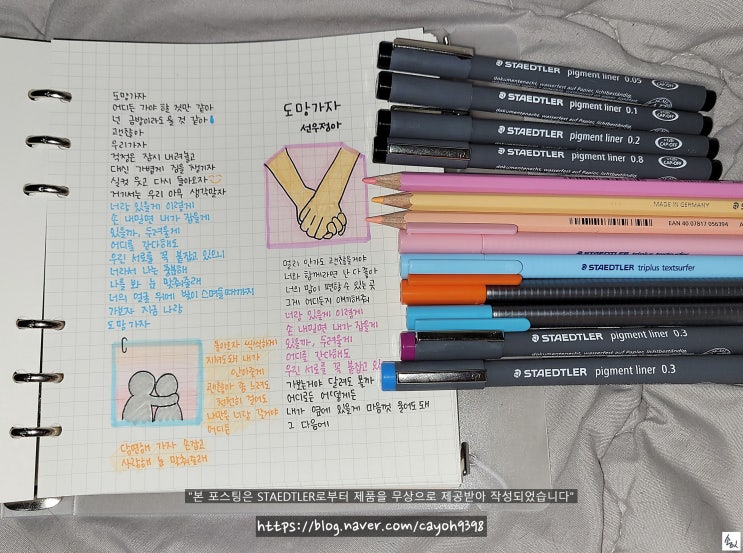 도망가자
어디든 가야 할 것만 같아
넌 금방이라도 울 것 같아
괜찮아
우리가자
걱정은 잠시 내려놓고
대신 가볍게 짐을 챙기자
실컷 웃고 다시 돌아오자
거기서는 우리 아무 생각말자
너랑 있을게 이렇게
손 내밀면 내가 잡을게
있을까, 두려울게
어디를 간다해도
우린 서로를 꼭 붙잡고 있으니
너라서 나는 충분해
나를 봐 눈 맞춰줄래
너의 얼굴 위에 빛이 스며들때까지
가보자 지금 나랑
도망가자
돌아오자 씩씩하게
지쳐도돼 내가
안아줄게
괜찮아 좀 느려도
천천히 걸어도
나만은 너랑 갈거야
어디든
당연해 가자 손잡고
사랑해 눈 맞춰줄래
도망가자
선우정아
멀리 안가도 괜찮을거야
너와 함께라면 난 다 좋아
너의 맘이 편할 수 있는 곳
그게 어디든지 얘기해줘
너랑 있을게 이렇게
손 내밀면 내가 잡을게
있을까, 두려울게
어디를 간다해도
우린 서로를 꼭 붙잡고 있
가보는거야 달려도 볼까
어디로든 어떻게든
내가 옆에 있을게 마음껏 울어도 돼
그 다음에
STAEDTLER pigment liner 0.05
dokumentenecht, wasserfest auf Papier, lichtbeständig
CAP-OFF
STAEDTLER pigment liner 0.1
CAP-OFF
STAEDTLER pigment liner 0.2
CAP-OFF
STAEDTLER pigment liner 0.8
CAP-OFF
MADE IN GERMANY
EAN 40 07817 056394
STAEDTLER triplus textsurfer
STAEDTLER pigment liner 0.3
STAEDTLER pigment liner 0.3
"본 포스팅은 STAEDTLER로부터 제품을 무상으로 제공받아 작성되었습니다"
https://blog.naver.com/cayoh9398